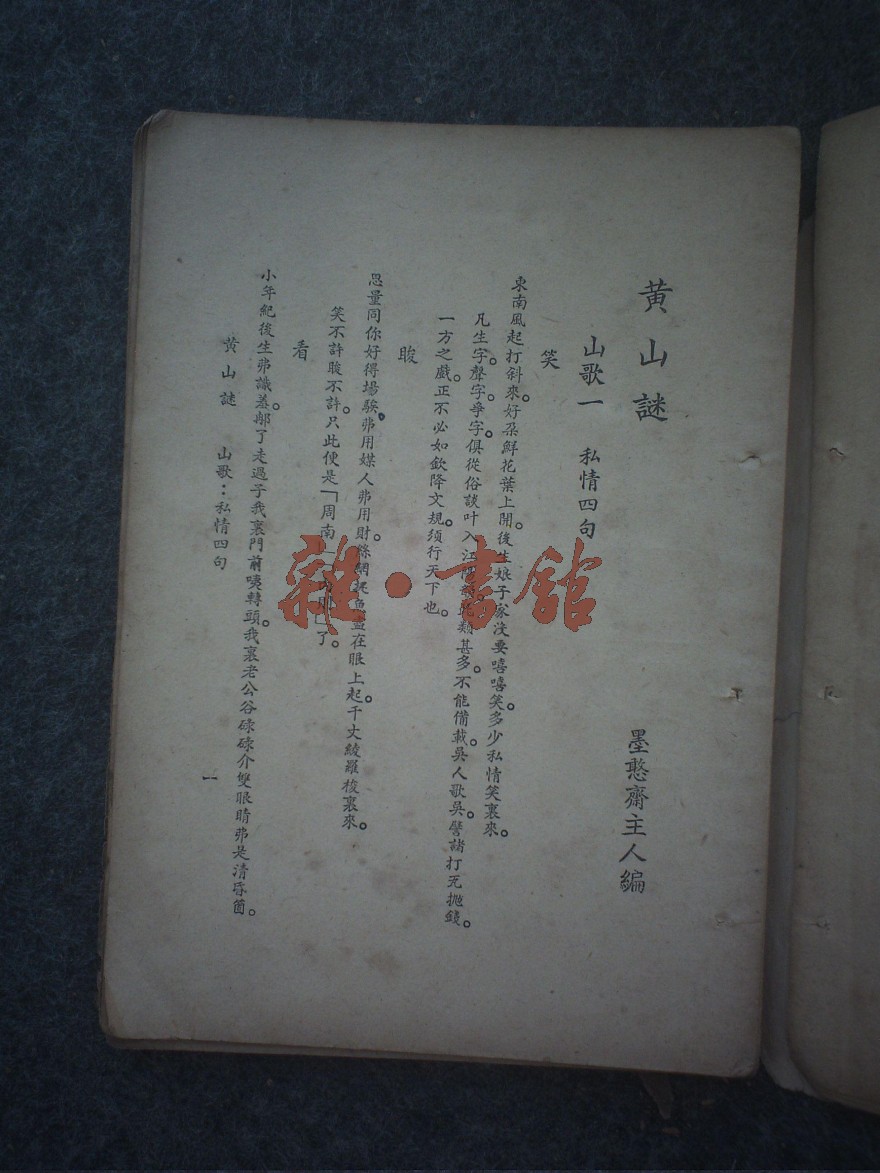 黄山謎
墨憨齋主人編
山歌一 私情四句
笑
東南風起打斜來。好朶鮮花葉上開。後生娘子家沒要嘻嘻笑。多少私情笑裏來。
凡生字。聲字。爭字。俱從俗談叶入江 此類甚多。不能備載。吳人歌吳。譬諸打瓦抛錢。
一方之戲。正不必如欽降文規。須行天下也。
睃
思量同你好得場騃。弗用媒人弗用財。絲網捉魚盡在眼上起。千丈綾羅梭裏來。
笑不許睃不許。只此便是「周南」 了。
看
小年紀後生弗識羞。郍了走過子我裏門前咦轉頭。我裏老公谷碌碌介雙眼睛弗是清昏箇。
黄山謎 山歌：私情四句
一
雜·書館